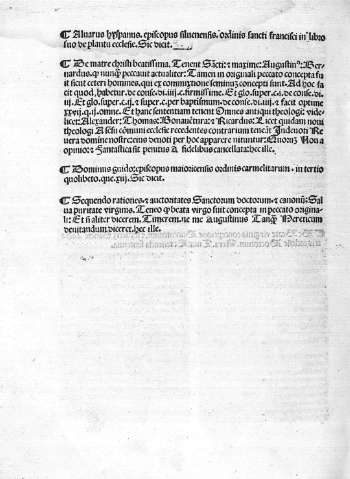 ¶ Aluarus hyspanus. episcopus siluensis. ordinis sancti francisci in libro
suo de planctu ecclesie. Sic dicit.
¶ De matre christi beatissima. Tenent Sācti: ⁊ maxime: Augustinꝰ: Ber-
nardus. ꝙ nunqȝ peccauit actualiter: Tamen in originali peccato concepta fu
it sicut ceteri homines. qui ex commixtione seminuȝ concepti sunt. Ad hoc fa
cit quod. habetur. de conse. di. iiij. c. firmissime. Et glo. super. c. j. de conse. di. iij.
Et glo. super. c. ij. ⁊ super. c. per baptismum. de conse. di. iiij. ⁊ facit optime
xxvij. q. ij. omne. Et hanc sententiam tenent Omnes antiqui theologi: vide-
licet: Alexander: Thomas: Bonauētura: ⁊ Ricardus: Licet quidam noui
theologi A sēsu cōmuni ecclesie recedentes contrarium teneāt
vera domine nostre: eius deuoti per hoc apparere nitantur: Non a
opinio: ⁊ Fantastica sit penitus A fidelibus cancellata: hec ille.
¶ Dominus guido: episcopus maioricensis ordinis carmelitarum. in tertio
quolibeto. que. xiij. Sic dicit.
¶ Sequendo rationes ⁊ auctoritates Sanctorum doctorum: ⁊ canonū: Sal
ua puritate virginis. Teneo ꝙ beata virgo fuit concepta in peccato origina-
li: Et si aliter dicerem. Timerem. ne me Augustinus Tanqȝ Hereticum
deuitandum diceret. hec ille.